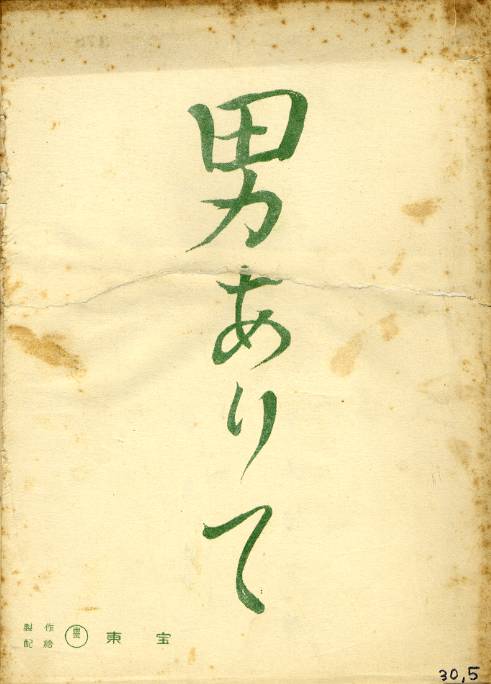 男ありて
製作
配給
東宝
30,5